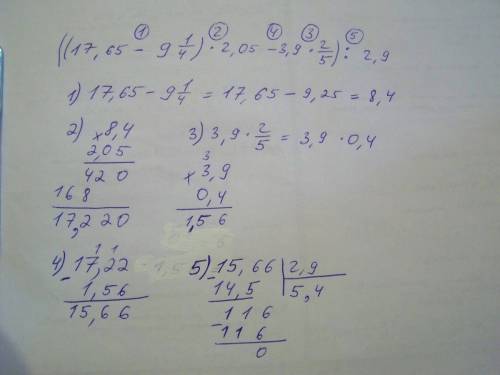 ① ② ④ ③ ⑤
((17,65 - 9 1/4) · 2,05 - 3,9 · 2/5) : 2,9
1) 17,65 - 9 1/4 = 17,65 - 9,25 = 8,4
2) × 8,4
2,05
420
168
17,220
3) 3,9 · 2/5 = 3,9 · 0,4
3
× 3,9
0,4
1,56
4) 1 1
- 17,22
1,56
15,66
5) - 15,66 | 2,9
14,5 | 5,4
- 116
116
0